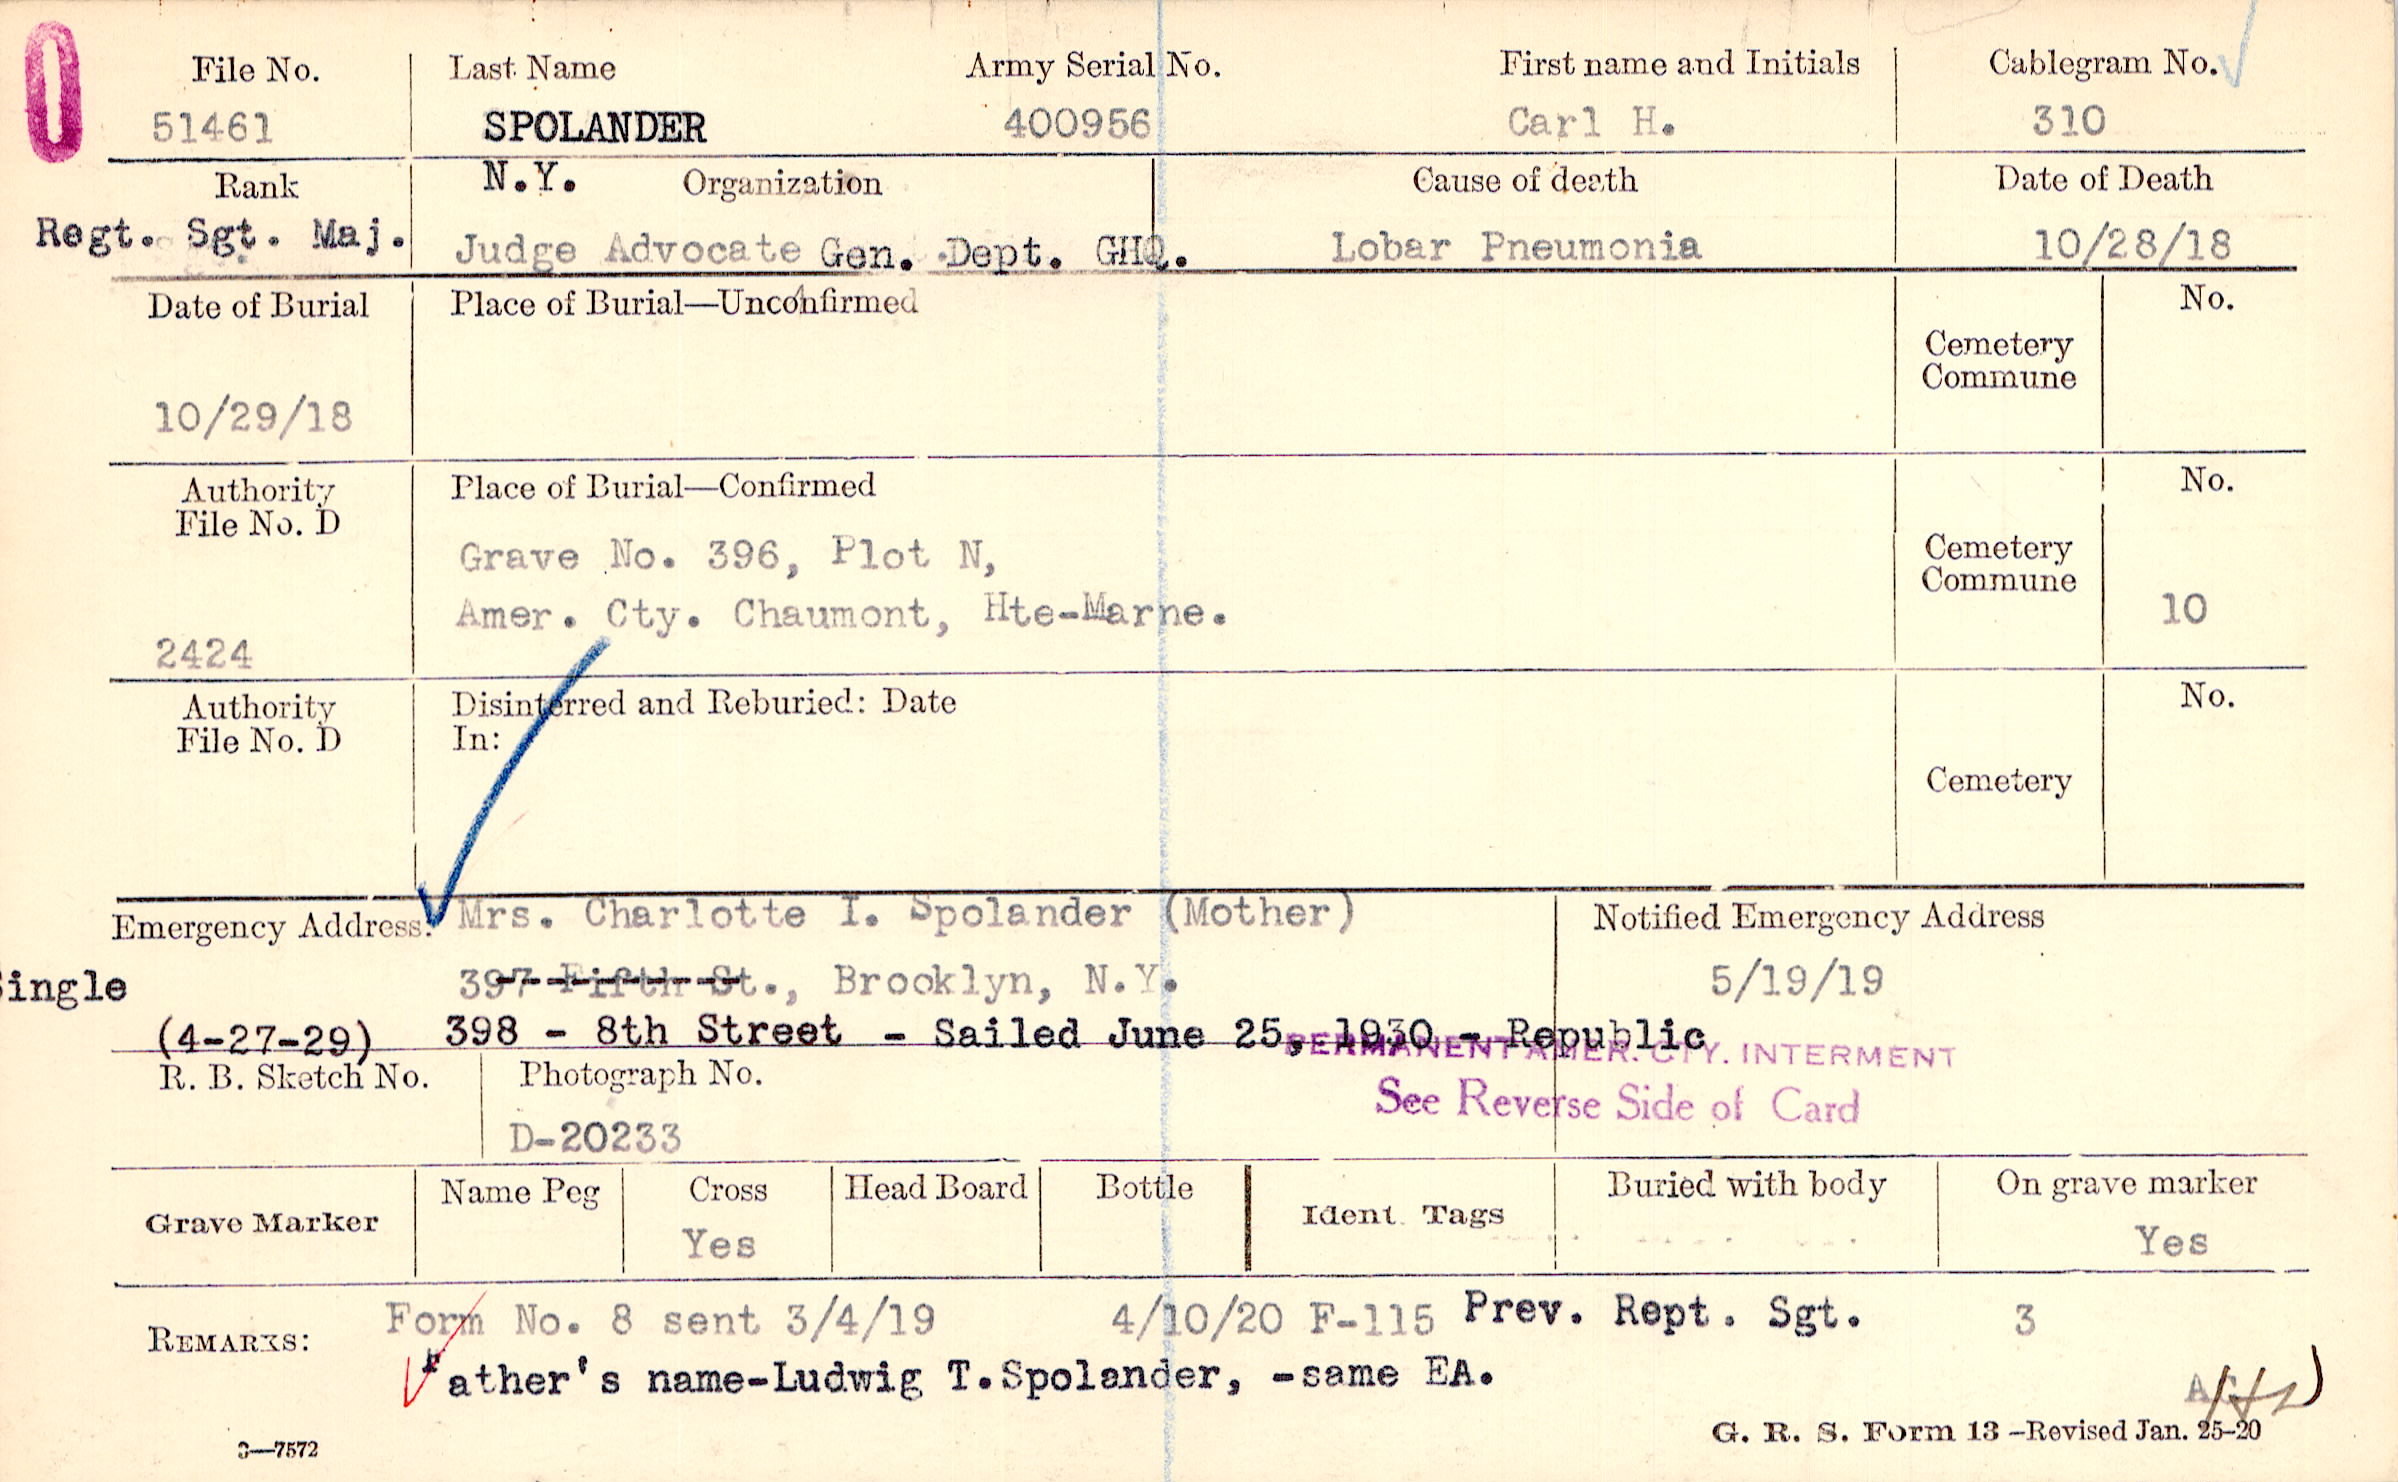 File No. Last Name Army Serial No. First name and Initials Cablegram No.
51461 SPOLANDER 400956 Carl H. 310
Rank N.Y. Organization Cause of death Date of Death
Regt. Sgt. Maj. Judge Advocate Gen. Dept. GHQ. Lobar Pneumonia 10/28/18
Date of Burial Place of Burial—Unconfirmed No.
Cemetery
Commune
10/29/18
Authority Place of Burial—Confirmed No.
File No. D
Grave No. 396, Plot N, Cemetery
Commune
Amer. Cty. Chaumont, Hte-Marne. 10
2424
Authority Disinterred and Reburied: Date No.
File No. D In:
Cemetery
Emergency Address: Mrs. Charlotte I. Spolander (Mother) Notified Emergency Address
Single 397 Fifth St., Brooklyn, N.Y. 5/19/19
(4-27-29) 398 - 8th Street - Sailed June 25, 1930 - Republic
PERMANENT AMER. CTY. INTERMENT
R. B. Sketch No. Photograph No.
See Reverse Side of Card
D-20233
Grave Marker Name Peg Cross Head Board Bottle Ident. Tags Buried with body On grave marker
Yes Yes
REMARKS: Form No. 8 sent 3/4/19 4/10/20 F-115 Prev. Rept. Sgt. 3
Father's name-Ludwig T.Spolander, -same EA.
3—7572 G. R. S. Form 13 -Revised Jan. 25-20